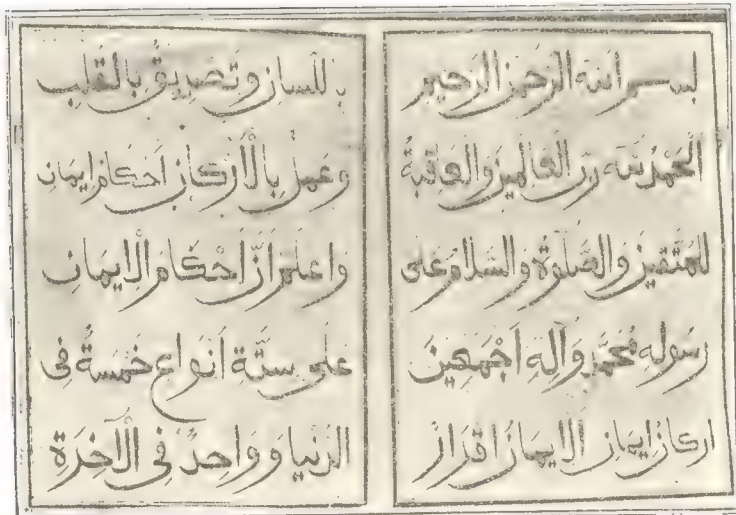 بسم الله الرحمن الرحيم
اَلْحَمْدُ لله رب العالمين والعاقبةُ
للمتقين والصَّلوةُ والسَّلامُ على
رسوله مُحَمَّدٍ وَآلِهِ اَجْمَعِينَ
اركان ايمان اَلايمان اقرار
باللسان وَتَصْدِيقٌ بِالْقَلب
وعمل بِالْاَرْكان اَحْكام ايمان
وَاعلم اَنَّ اَحْكام الْايمان
على ستَّة اَنْواع خمسةٌ فِى
الدنيا وَوَاحِدٌ فِى الْآخِرَةِ